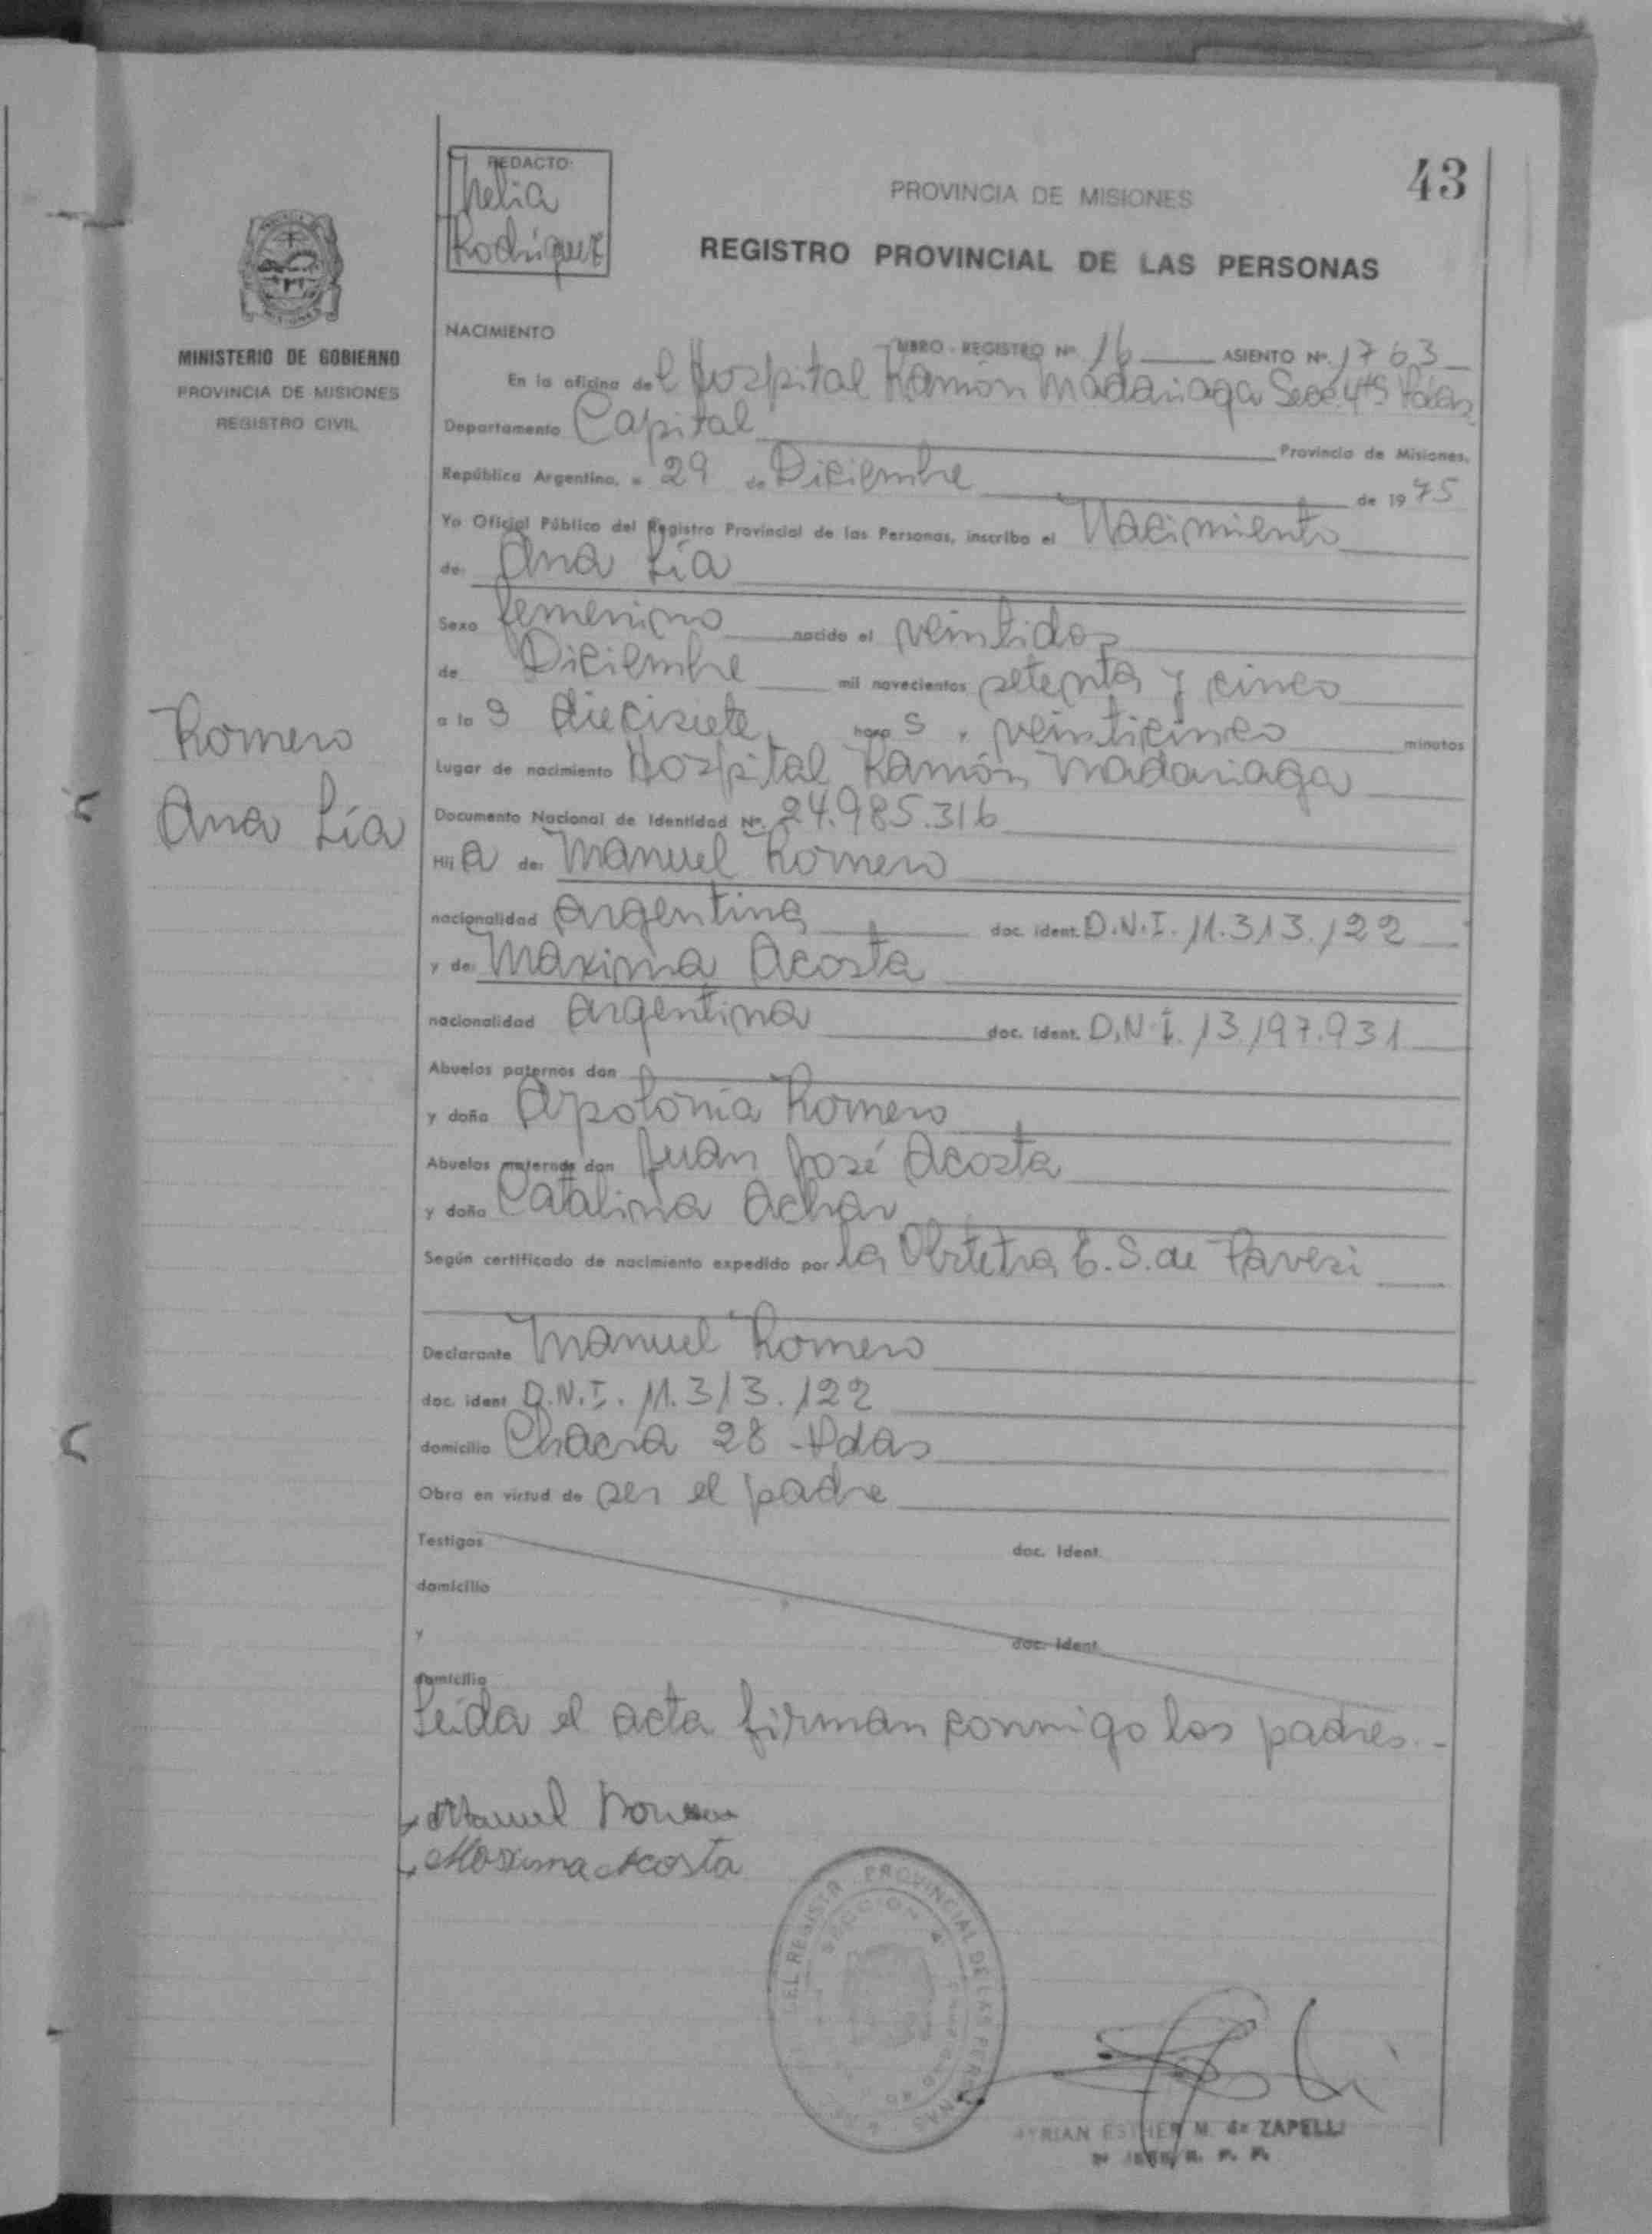 43
REDACTO:
Nelia
Rodriguez
PROVINCIA DE MISIONES
REGISTRO PROVINCIAL DE LAS PERSONAS
MINISTERIO DE GOBIERNO
PROVINCIA DE MISIONES
REGISTRO CIVIL
NACIMIENTO
LIBRO - REGISTRO Nº. 16 ASIENTO Nº. 1763
En la oficina del Hospital Ramón Madariaga Secc. 4ta Pdas
Departamento Capital Provincia de Misiones.
República Argentina, a 29 de Diciembre de 1975
Yo Oficial Público del Registro Provincial de las Personas, inscribo el Nacimiento
de: Ana Lía
Sexo femenino nacido el veintidos
de Diciembre mil novecientos setenta y cinco
a las diecisiete horas, veinticinco minutos
Lugar de nacimiento Hospital Ramón Madariaga
Romero
Ana Lía
Documento Nacional de Identidad Nº. 24.985.316
Hija de: Manuel Romero
nacionalidad argentina doc. ident. D.N.I. 11.313.122
y de: Maxima Acosta
nacionalidad argentina doc. ident. D.N.I. 13.197.931
Abuelos paternos don
y doña Apolonia Romero
Abuelos maternos don Juan José Acosta
y doña Catalina Achar
Según certificado de nacimiento expedido por la Obstetra E. S. de Pavesi
Declarante Manuel Romero
doc. ident D.N.I. 11.313.122
domicilio Chacra 28 - Pdas
Obra en virtud de ser el padre
Testigos doc. ident.
domicilio
y doc. ident.
domicilio
Leída el acta firman conmigo los padres.-
Manuel Romero
Maxima Acosta
DEL REGISTR PROVINCIAL DE LAS PERSONAS
SECCION 4
MYRIAN ESTHER M. de ZAPELLI
R. P. P.